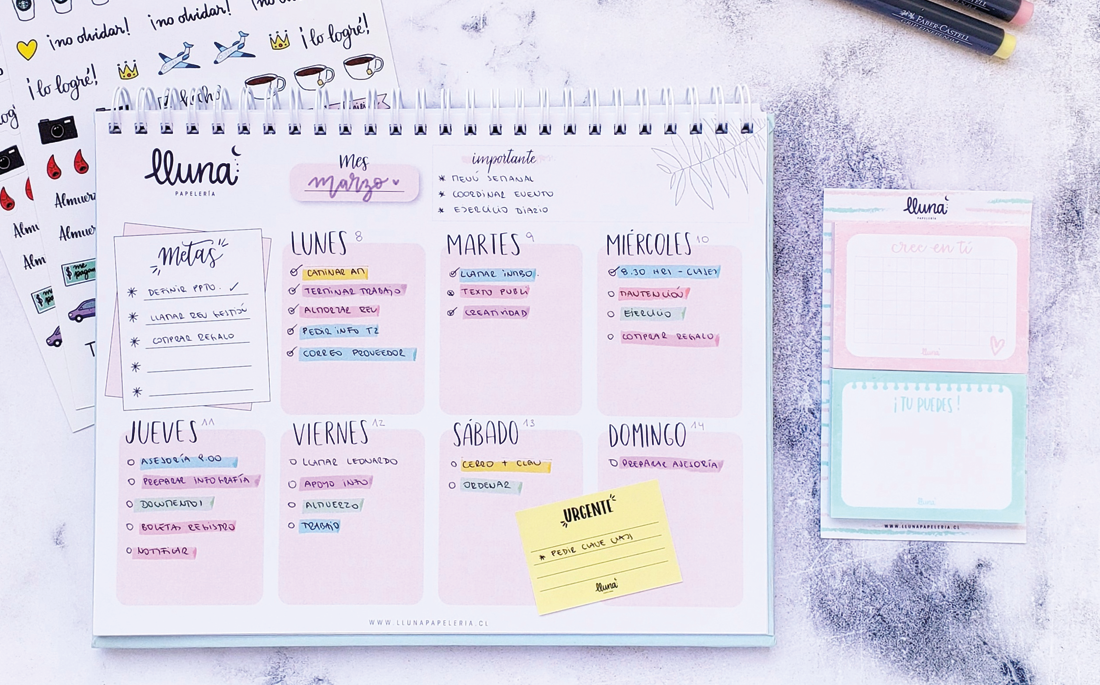 ¡no olvidar!
¡no olvidar!
¡no olvidar!
¡lo logré!
¡lo logré!
FABER-CASTELL
Almuer
Almu
Almuer
Alm
lluna
PAPELERÍA
Mes
marzo
importante
* MENÚ SEMANAL
* COORDINAR EVENTO
* EJERCICIO DIARIO
metas
* DEFINIR PPTO. ✓
* LLAMAR REU GESTIÓN
* COMPRAR REGALO
*
*
LUNES 8
CAMINAR AM
TERMINAR TRABAJO
ALMORZAR REU
PEDIR INFO T2
CORREO PROVEEDOR
MARTES 9
LLAMAR INMOB.
TEXTO PUBLI
CREATIVIDAD
MIÉRCOLES 10
8.30 HRS - CLASES
MANTENCIÓN
EJERCICIO
COMPRAR REGALO
JUEVES 11
ASESORÍA 9.00
PREPARAR INFOGRAFÍA
DOCUMENTOS
BOLETAS REGISTRO
NOTIFICAR
VIERNES 12
LLAMAR LEONARDO
APOYO INFO
ALMUERZO
TRABAJO
SÁBADO 13
CERRO + CLAU
ORDENAR
DOMINGO 14
PREPARAR ASESORÍA
URGENTE
* PEDIR CLAVE
lluna
WWW.LLUNAPAPELERIA.CL
lluna
PAPELERÍA
cree en ti
lluna
¡TU PUEDES!
lluna
WWW.LLUNAPAPELERIA.CL